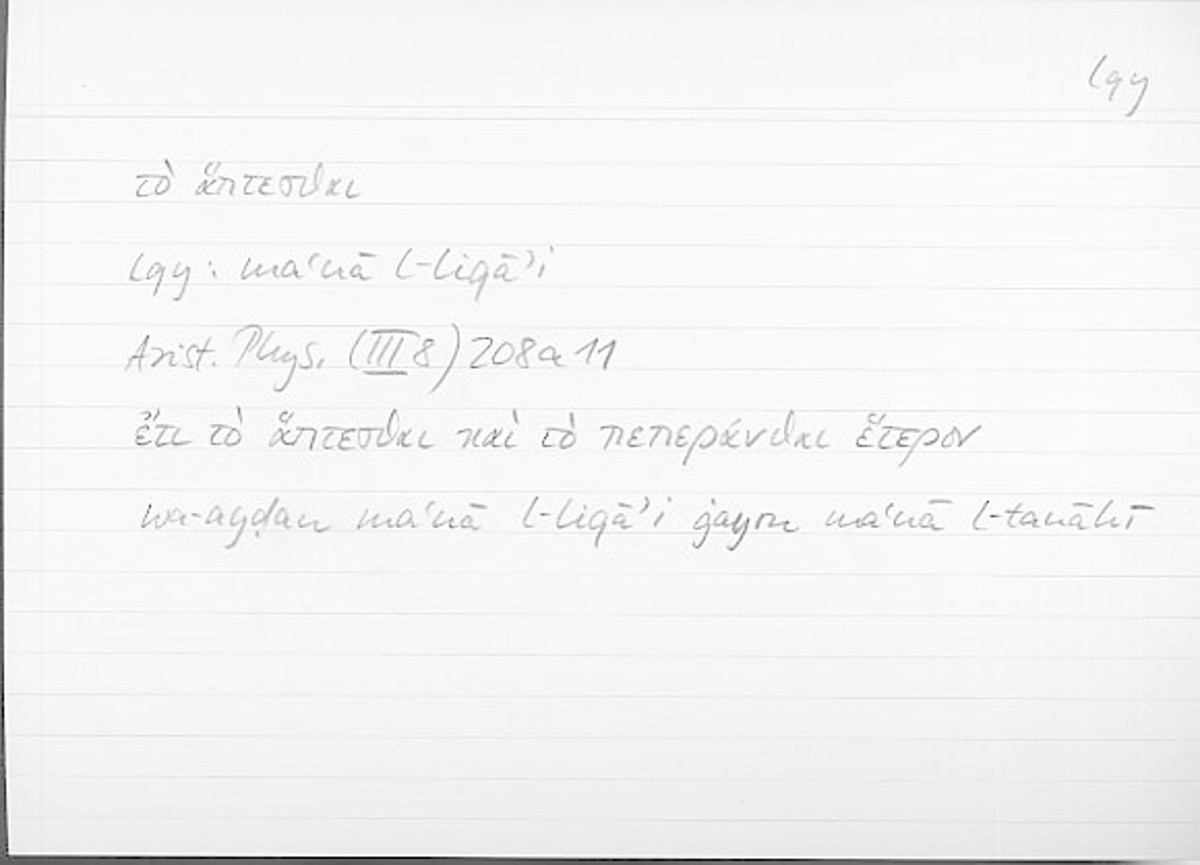 lqy
τὸ ἅπτεσθαι
lqy: maʿnā l-liqāʾi
Arist. Phys. (III 8) 208a11
ἔτι τὸ ἅπτεσθαι καὶ τὸ πεπεράνθαι ἕτερον
wa-ayḍan maʿnā l-liqāʾi ġayru maʿnā l-tanāhī